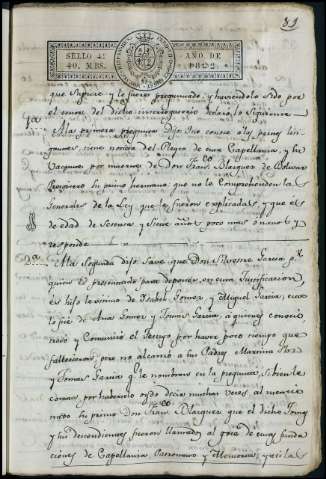 81
SELLO 4º
40. MRS.
AÑO DE
1822.
que supiere y le fuere preguntado, y haviendolo sido por
el tenor del dicho interrogatorio declaró lo siguiente
1ª A la primera pregunta Dijo: Que conoce a las partes
tiene noticia del Pleyto de esta Capellania, y la
Vacante por muerte de Don Franco Blazquez de
su primo hermano, que no le Comprehenden las
Generales de la Ley que le fueron explicadas, y que es
de edad de Sesenta y Siete años poco mas o menos y
responde
2ª A la Segunda dijo: Save que Don Silvestre Garcia pr
quien es presentado para deponer en esta Justificacion,
es hijo lexitimo de Isabel Gomez, y Miguel Garcia, esta
lo fué de Ana Gomez y Tomas Garcia, a quienes conoció
trató y Comunicó el Testigo por haver poco tiempo que
fallecieron, pero no alcanzó a sus Padres
y Tomas Garcia qe le nombran en la pregunta, si bien le
consta por haberselo oydo decir muchas veces al mencio-
nado su primo Don Franco Blazquez que el dicho Tomas
y sus descendientes fueron llamados al goce de estas funda-
ciones de Capellania Patronato y Memorias, y esi la